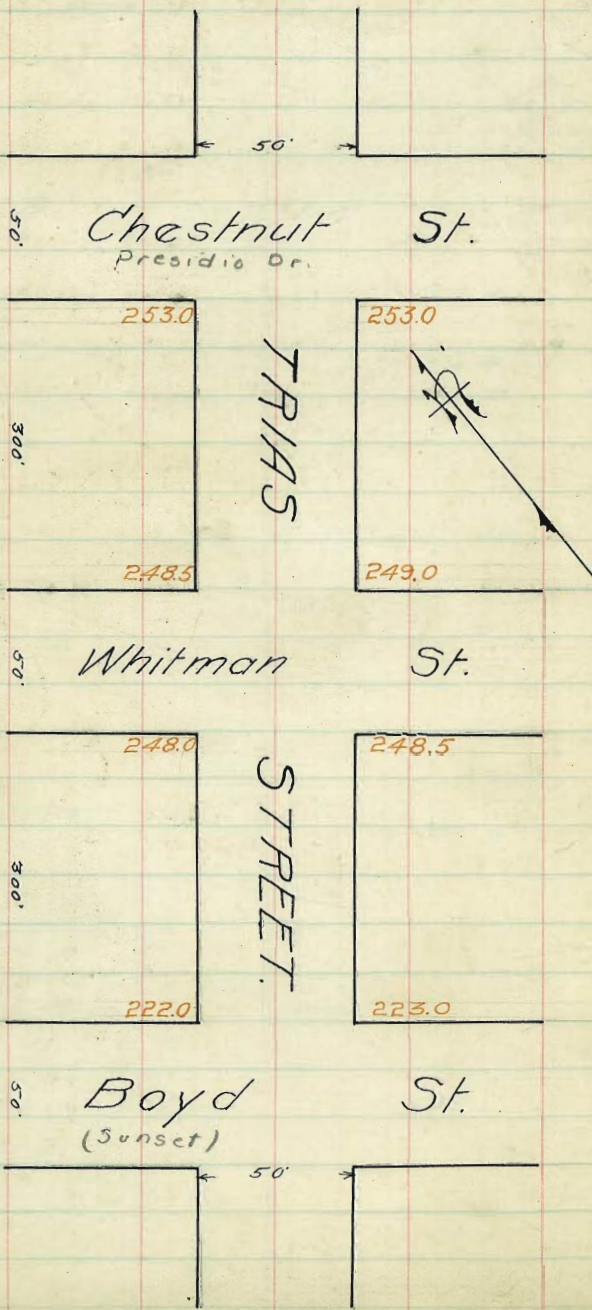 50'
50'
Chestnut St.
Presidio Dr.
253.0 253.0
TRIAS
300'
N
248.5 249.0
50'
Whitman St.
248.0 248.5
STREET.
300'
222.0 223.0
50'
Boyd St.
(Sunset)
50'